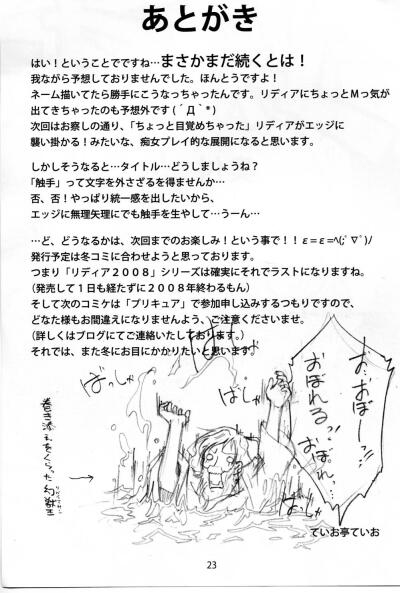 あとがき
はい！ということでですね…まさかまだ続くとは！
我ながら予想しておりませんでした。ほんとうですよ！
ネーム描いてたら勝手にこうなっちゃったんです。リディアにちょっとＭっ気が
出てきちゃったのも予想外です (´Д｀*)
次回はお察しの通り、「ちょっと目覚めちゃった」リディアがエッジに
襲い掛かる！みたいな、痴女プレイ的な展開になると思います。
しかしそうなると…タイトル…どうしましょうね？
「触手」って文字を外さざるを得ませんか…
否、否！やっぱり統一感を出したいから、
エッジに無理矢理にでも触手を生やして…うーん…
…ど、どうなるかは、次回までのお楽しみ！という事で！！ε＝ε＝ﾍ(;ﾟ∇ﾟ)ﾉ
発行予定は冬コミに合わせようと思っております。
つまり「リディア２００８」シリーズは確実にそれでラストになりますね。
（発売して１日も経たずに２００８年終わるもん）
そして次のコミケは「プリキュア」で参加申し込みするつもりですので、
どなた様もお間違えになりませんよう、ご注意くださいませ。
（詳しくはブログにてご連絡いたしております。）
それでは、また冬にお目にかかりたいと思います。
ばっしゃ
ばしゃ
ばっしゃ
お、おぼーっ!!
おぼれるっ!
おぼれ…
巻き添えをくらった幻獣王
ていお亭ていお
23